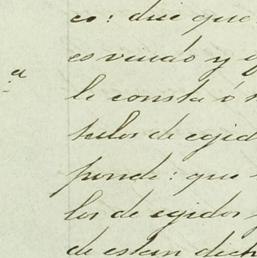 co: dice que
es viudo y q
a
le consta ó s
tulos de egid
ponde: que
los de egidos
de estan dich